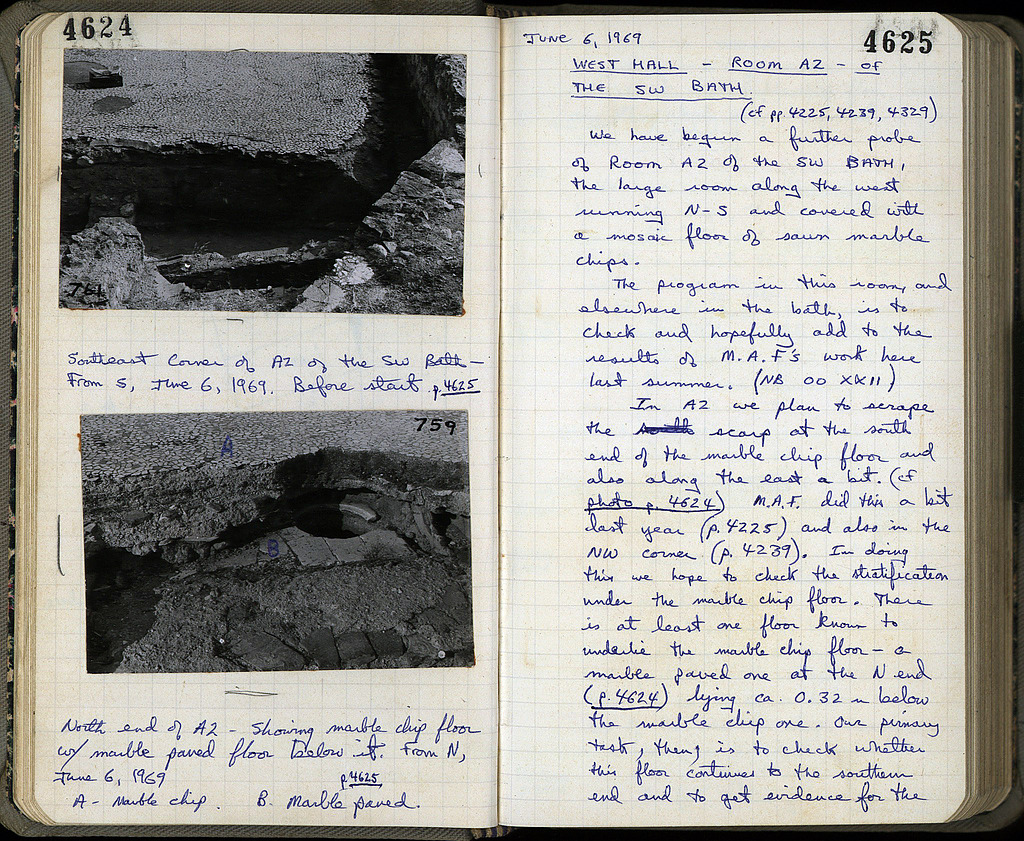 4624
761
Southeast Corner of A2 of the SW Bath -
From S, June 6, 1969. Before start p.4625
759
A
B
North end of A2 - Showing marble chip floor
w/ marble paved floor below it. From N,
June 6, 1969
p.4625
A - Marble chip. B. Marble paved.
June 6, 1969
4625
WEST HALL - ROOM A2 - of
THE SW BATH.
(cf pp. 4225, 4239, 4329)
We have begun a further probe
of Room A2 of the SW BATH,
the large room along the west
running N-S and covered with
a mosaic floor of sawn marble
chips.
The program in this room, and
elsewhere in the bath, is to
check and hopefully add to the
results of M.A.F's work here
last summer. (NB OO XXII)
In A2 we plan to scrape
the south scarp at the south
end of the marble chip floor and
also along the east a bit. (cf
photo p. 4624) M.A.F. did this a bit
last year (p. 4225) and also in the
NW corner (p. 4239). In doing
this we hope to check the stratification
under the marble chip floor. There
is at least one floor known to
underlie the marble chip floor - a
marble paved one at the N end
(p. 4624) lying ca. 0.32 m below
the marble chip one. Our primary
task, then, is to check whether
this floor continues to the southern
end and to get evidence for the